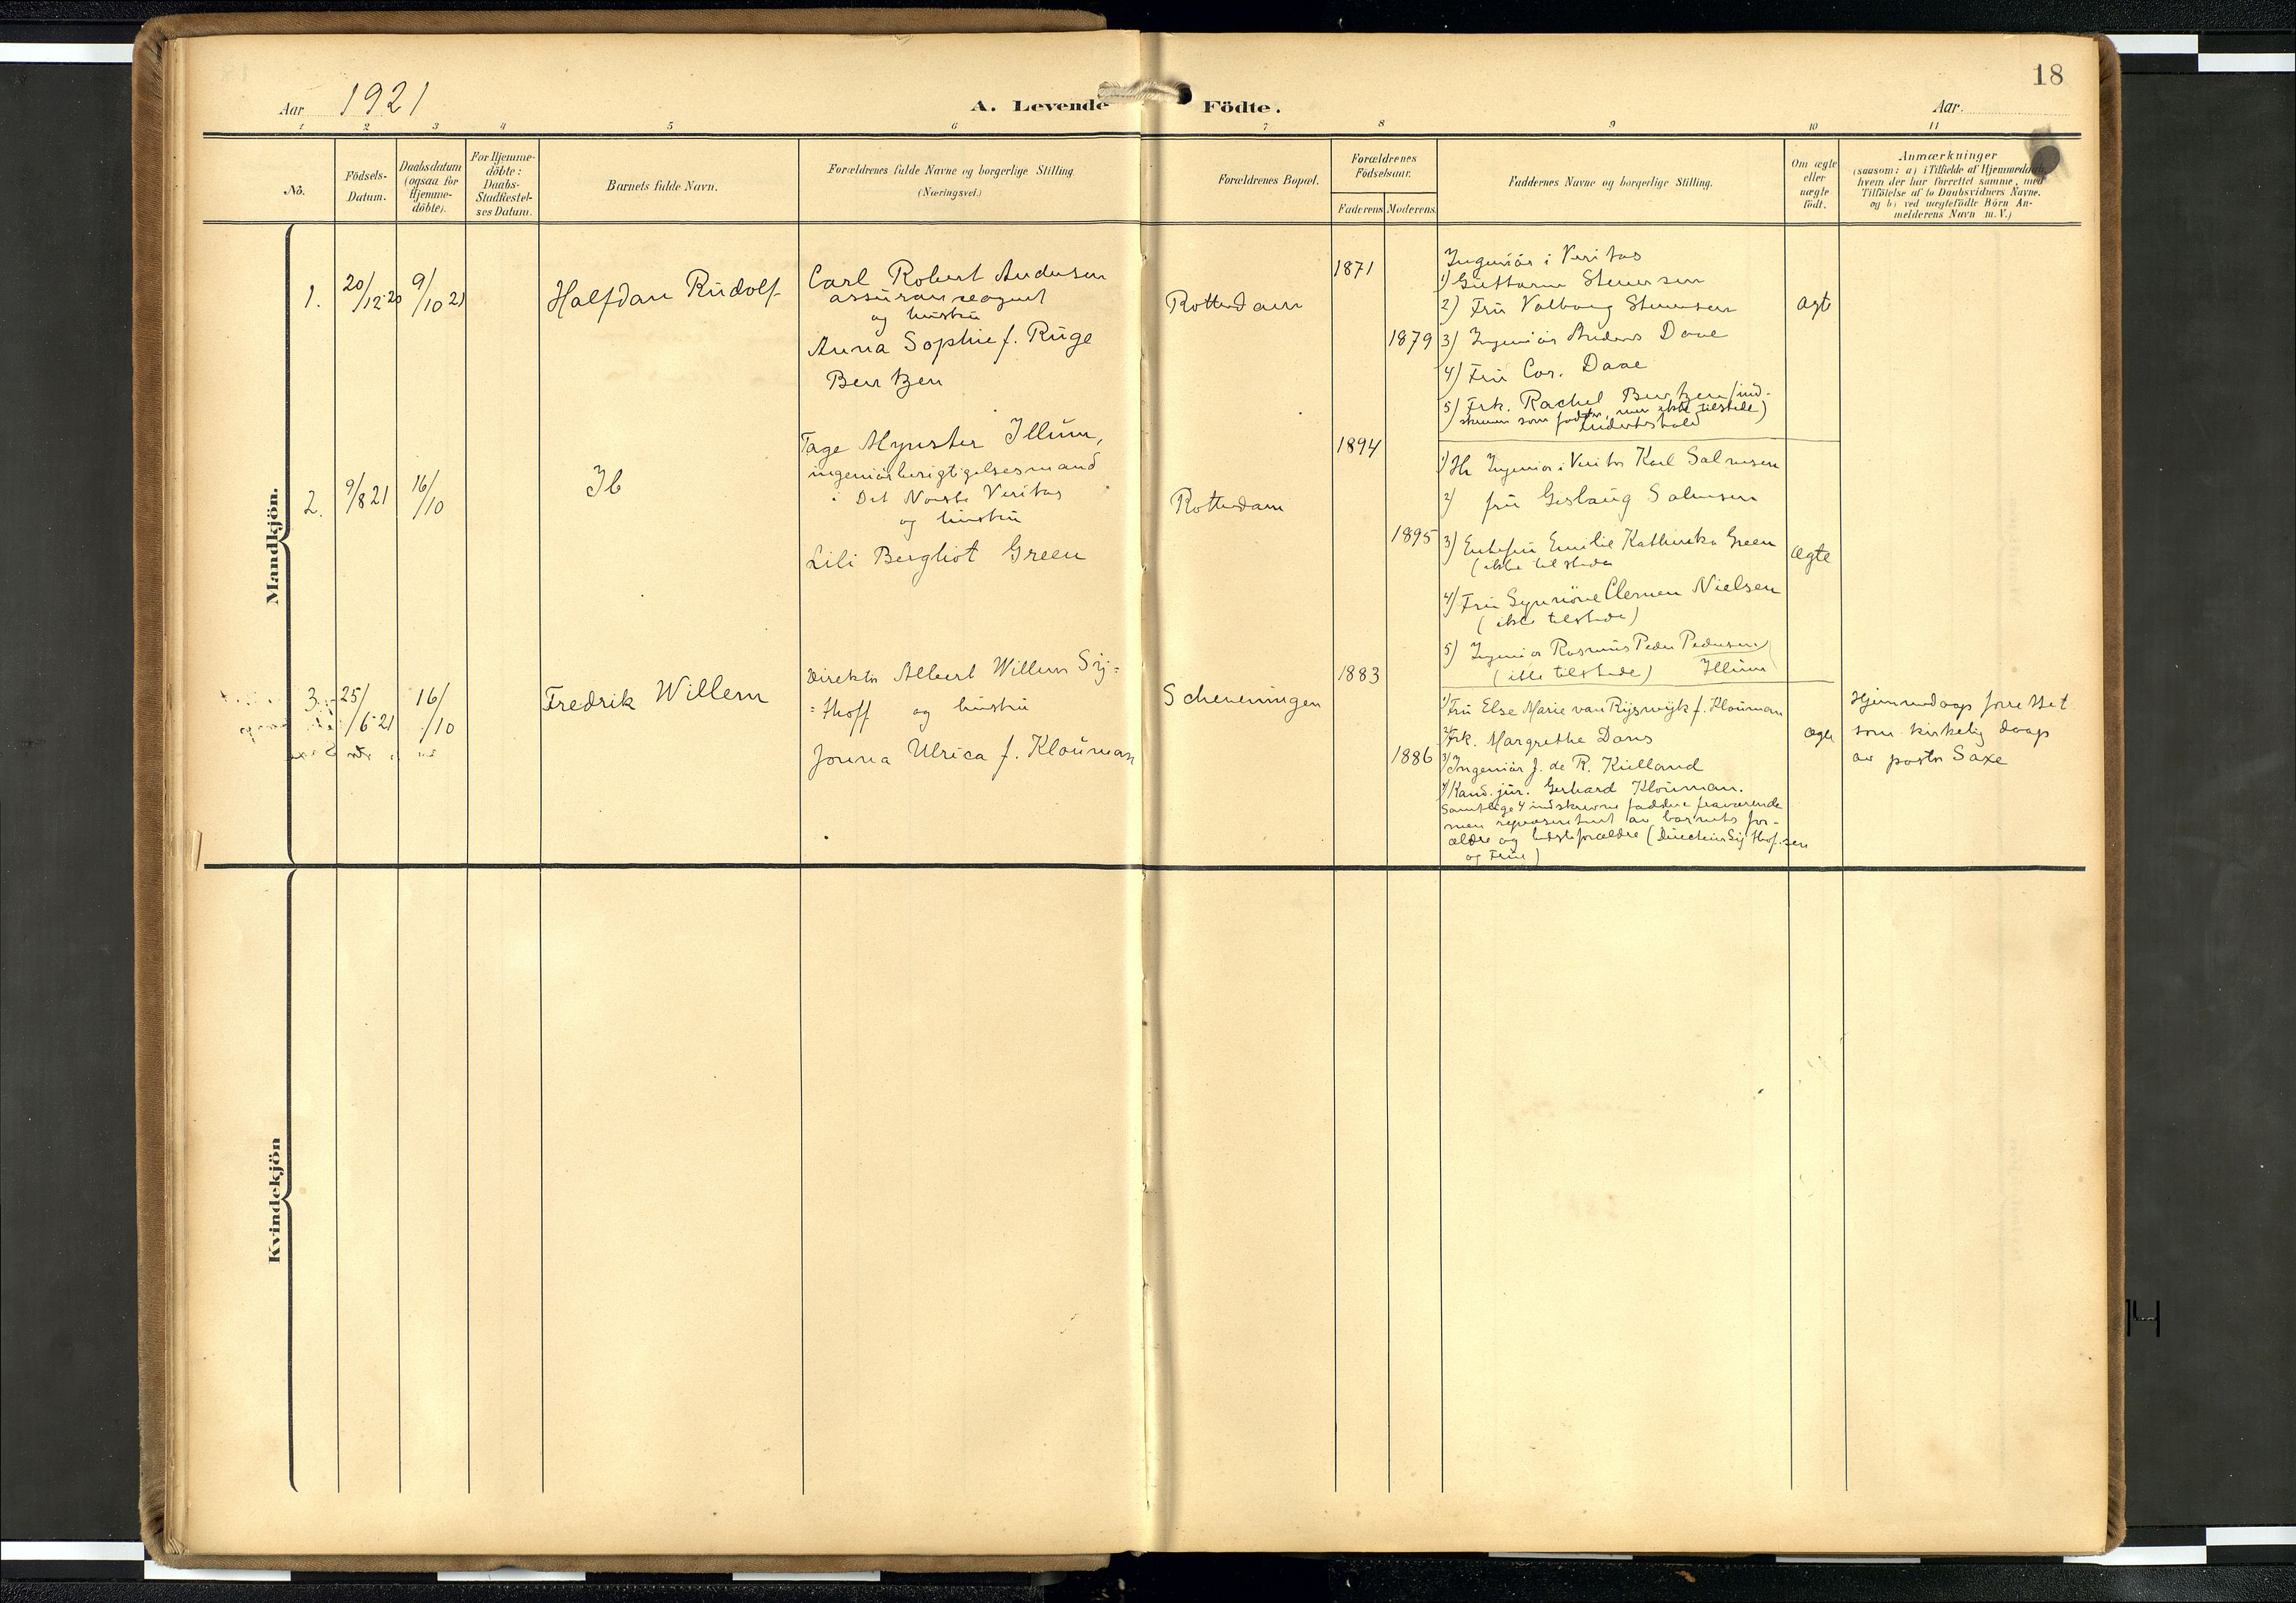 18
Aar 1921
A. Levende Födte.
Aar.
1 2 3 4 5 6 7 8 9 10 11
No.
Födsels-
Datum.
Daabsdatum
(ogsaa for
Hjemme-
döbte).
For Hjemme-
döbte:
Daabs-
Stadfæstel-
ses Datum.
Barnets fulde Navn.
Forældrenes fulde Navne og borgerlige Stilling.
(Næringsvei.)
Forældrenes Bopæl.
Forældrenes
Födselsaar.
Faderens
Moderens.
Faddernes Navne og borgerlige Stilling.
Om ægte
eller
uægte
födt.
Anmærkninger
(saasom: a) i Tilfælde af Hjemmedaab,
hvem der har forrettet samme, med
Tilföielse af to Daabsvidners Navne.
og b) ved uægtefödte Börn An-
melderens Navn m. V.)
Mandkjön.
1.
20/12 20
9/10 21
Halfdan Rudolf
Carl Robert Andersen
assuranceagent
og hustru
Anna Sophie f. Ruge
Berntzen
Rotterdam
1871
1879
Ingeniör i Veritas
1) Guttorm Steensen
2) Fru Valborg Steensen
3) Ingeniör Anders Daae
4) Fru Cas. Daae
5) Frk. Rachel Berntzen (ind-
skreven som fadder, men ikke tilstede)
ægte
2.
9/8 21
16/10
Ib
Tage Mynster Illum,
ingeniör besigtigelsesmand
i Det Norske Veritas
og hustru
Lili Bergliot Green
Rotterdam
1894
1895
1) Hr Ingeniör i Veritas Karl Salvesen
2) fru Geslaug Salvesen
3) Enkefru Emilie Kathinka Green
(ikke tilstede
4) Fru Synnöve Clemen Nielsen
(ikke tilstede)
5) Ingeniör Rasmus Peder Pedersen
(ikke tilstede) Illum
ægte
3.
25/6 21
16/10
Fredrik Willem
Direktör Albert Willem Sij=
=thoff og hustru
Jonna Ulrica f. Klouman
Scheveningen
1883
1886
1) Fru Else Marie van Rijswijk f. Klouman
2) Frk. Margrethe Dons
3) Ingeniör J. de R. Kielland
4) Kand. jur. Gerhard Klouman.
Samtlige 4 indskrevne faddere fraværende
men repræsentert av barnets for-
ældre og bedsteforældre (Direktör Sijthoff sen
og Frue)
ægte
Hjemmedaap forrettet
som kirkelig daap
av pastor Saxe
Kvindekjön